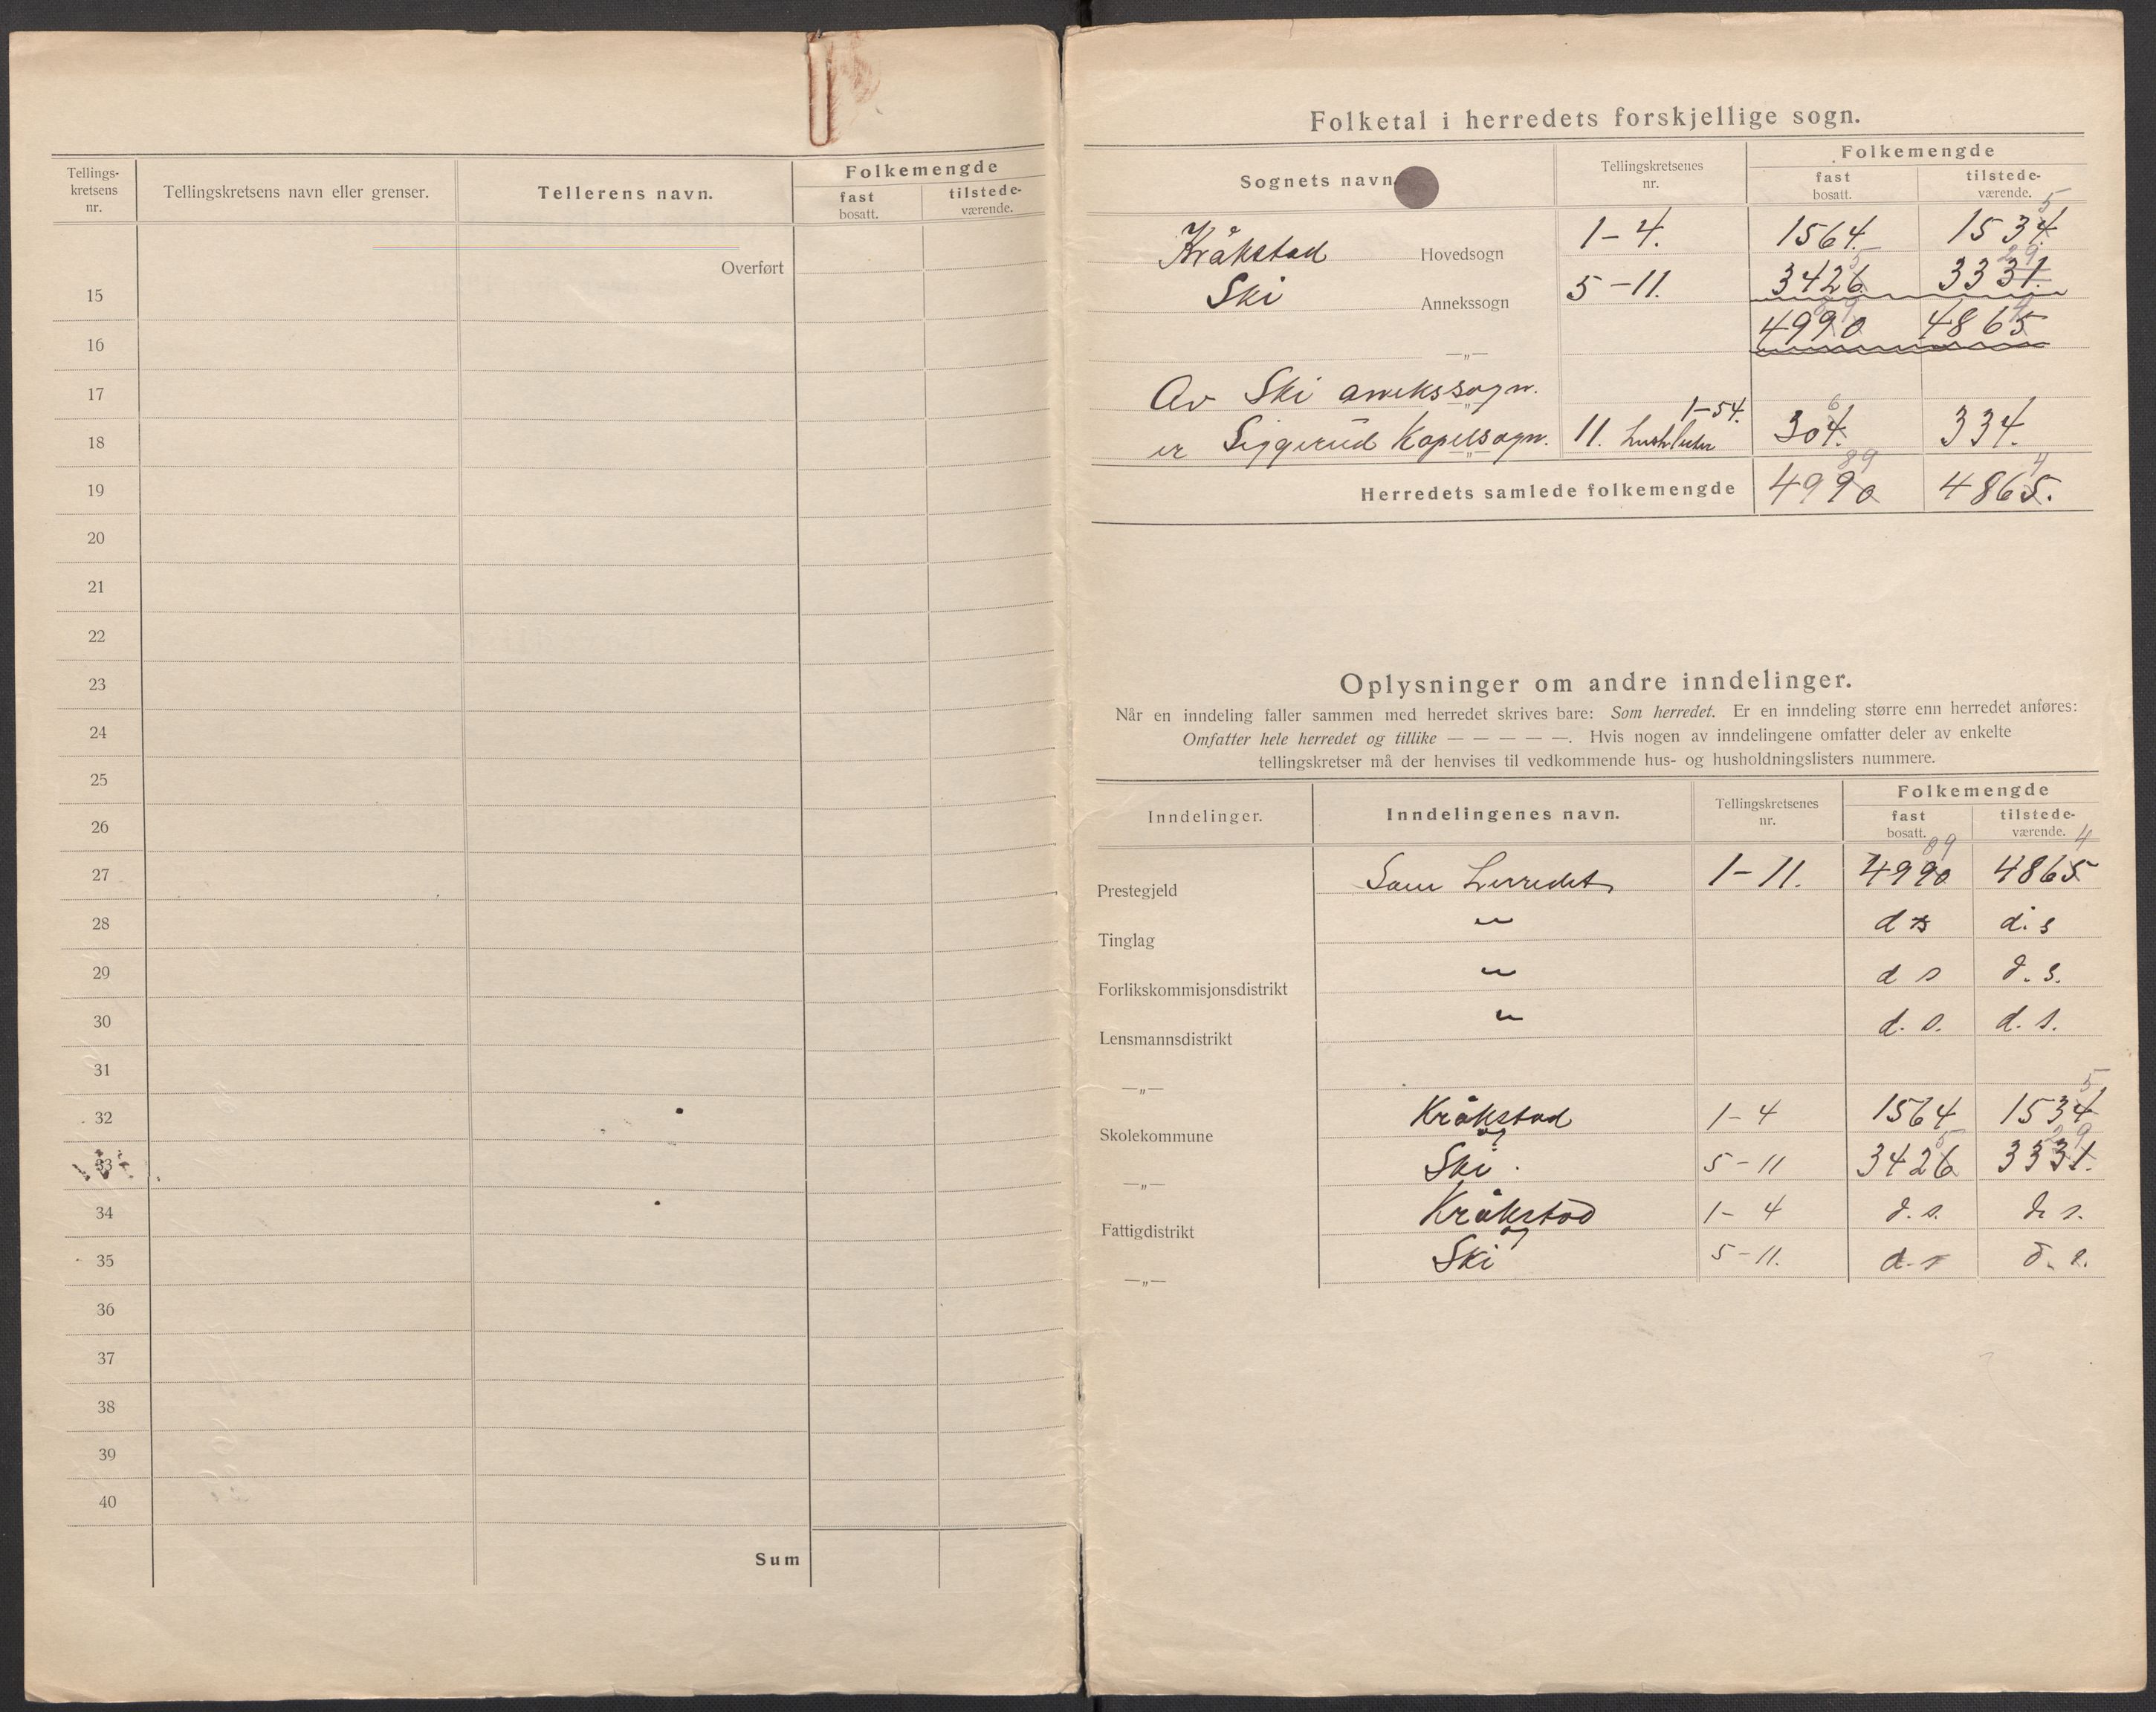 Tellings-
kretsens
nr.
Tellingskretsens navn eller grenser.
Tellerens navn.
Folkemengde
fast
bosatt.
tilstede-
værende.
Overført
15
16
17
18
19
20
21
22
23
24
25
26
27
28
29
30
31
32
33
34
35
36
37
38
39
40
Sum
Folketal i herredets forskjellige sogn.
Sognets navn
Tellingskretsenes
nr.
Folkemengde
fast
bosatt.
tilstede-
værende.
Kråkstad Hovedsogn 1-4. 1564. 1534. 5
Ski Annekssogn 5-11. 3426 5 3331. 29
4990 89 4865 4
—„—
Av Ski annekssogn.
er Siggerud Kapelsogn. 11. 1-54. 304. 6 334.
Herredets samlede folkemengde 4990 89 4865. 4
Oplysninger om andre inndelinger.
Når en inndeling faller sammen med herredet skrives bare: Som herredet. Er en inndeling større enn herredet anføres:
Omfatter hele herredet og tillike — — — — —. Hvis nogen av inndelingene omfatter deler av enkelte
tellingskretser må der henvises til vedkommende hus- og husholdningslisters nummere.
Inndelinger.
Inndelingenes navn.
Tellingskretsenes
nr.
Folkemengde
fast
bosatt.
tilstede-
værende.
Prestegjeld Som herredet 1-11. 4990 89 4865 4
Tinglag " d s d. s
Forlikskommisjonsdistrikt " d s d. s.
Lensmannsdistrikt " d. s. d. s.
—„—
Skolekommune Kråkstad 1-4 1564 1534 5
og
—„— Ski. 5-11 3426 5 3331. 29
Fattigdistrikt Kråkstad 1-4 d. s. d s.
og
—„— Ski 5-11. d. s d. s.